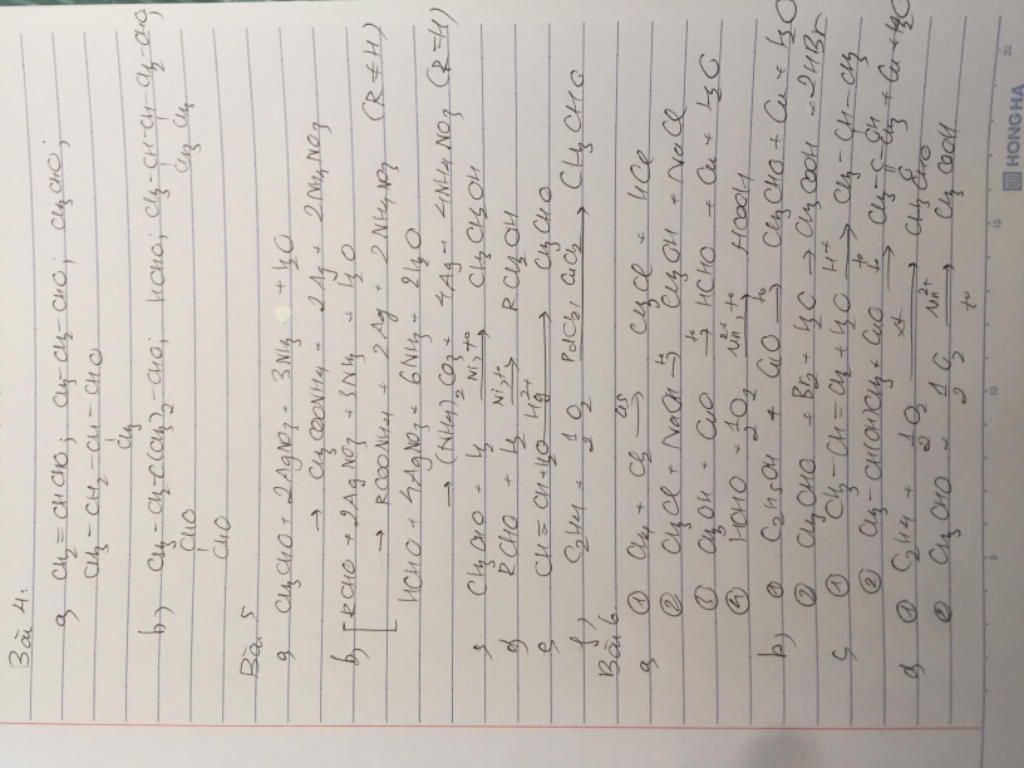 Bài 4.
a) CH2 = CHCHO; CH3-CH2-CHO; CH3CHO;
CH3 - CH2 - CH - CHO
CH3
b) CH3-CH2-C(CH3)2-CHO; HCHO; CH3-CH-CH-CH2-CHO;
CH3 CH3
CHO
CHO
Bài 5
a) CH3CHO + 2AgNO3 + 3NH3 + H2O
→ CH3COONH4 + 2Ag + 2NH4NO3
b) RCHO + 2AgNO3 + 3NH3 + H2O
→ RCOONH4 + 2Ag + 2NH4NO3 (R ≠ H)
HCHO + 4AgNO3 + 6NH3 + 2H2O
→ (NH4)2CO3 + 4Ag + 4NH4NO3 (R=H)
c) CH3CHO + H2 Ni, t° → CH3CH2OH
d) RCHO + H2 Ni, t° → RCH2OH
e) CH ≡ CH + H2O Hg2+ → CH3CHO
f) C2H4 + 1/2 O2 PdCl2, CuCl2 → CH3CHO
Bài 6
a) ① CH4 + Cl2 as → CH3Cl + HCl
② CH3Cl + NaOH t° → CH3OH + NaCl
① CH3OH + CuO t° → HCHO + Cu + H2O
④ HCHO + 1/2 O2 Mn2+, t° → HCOOH
b) ① C2H5OH + CuO t° → CH3CHO + Cu + H2O
② CH3CHO + Br2 + H2O → CH3COOH + 2HBr
c) ① CH3-CH=CH2 + H2O H+ → CH3-CH-CH3
OH
② CH3-CH(OH)CH3 + CuO t° → CH3-C-CH3 + Cu + H2O
O
d) ① C2H4 + 1/2 O2 xt → CH3CHO
② CH3CHO + 1/2 O2 Mn2+ t° → CH3COOH
HONGHA
5
10
15
20